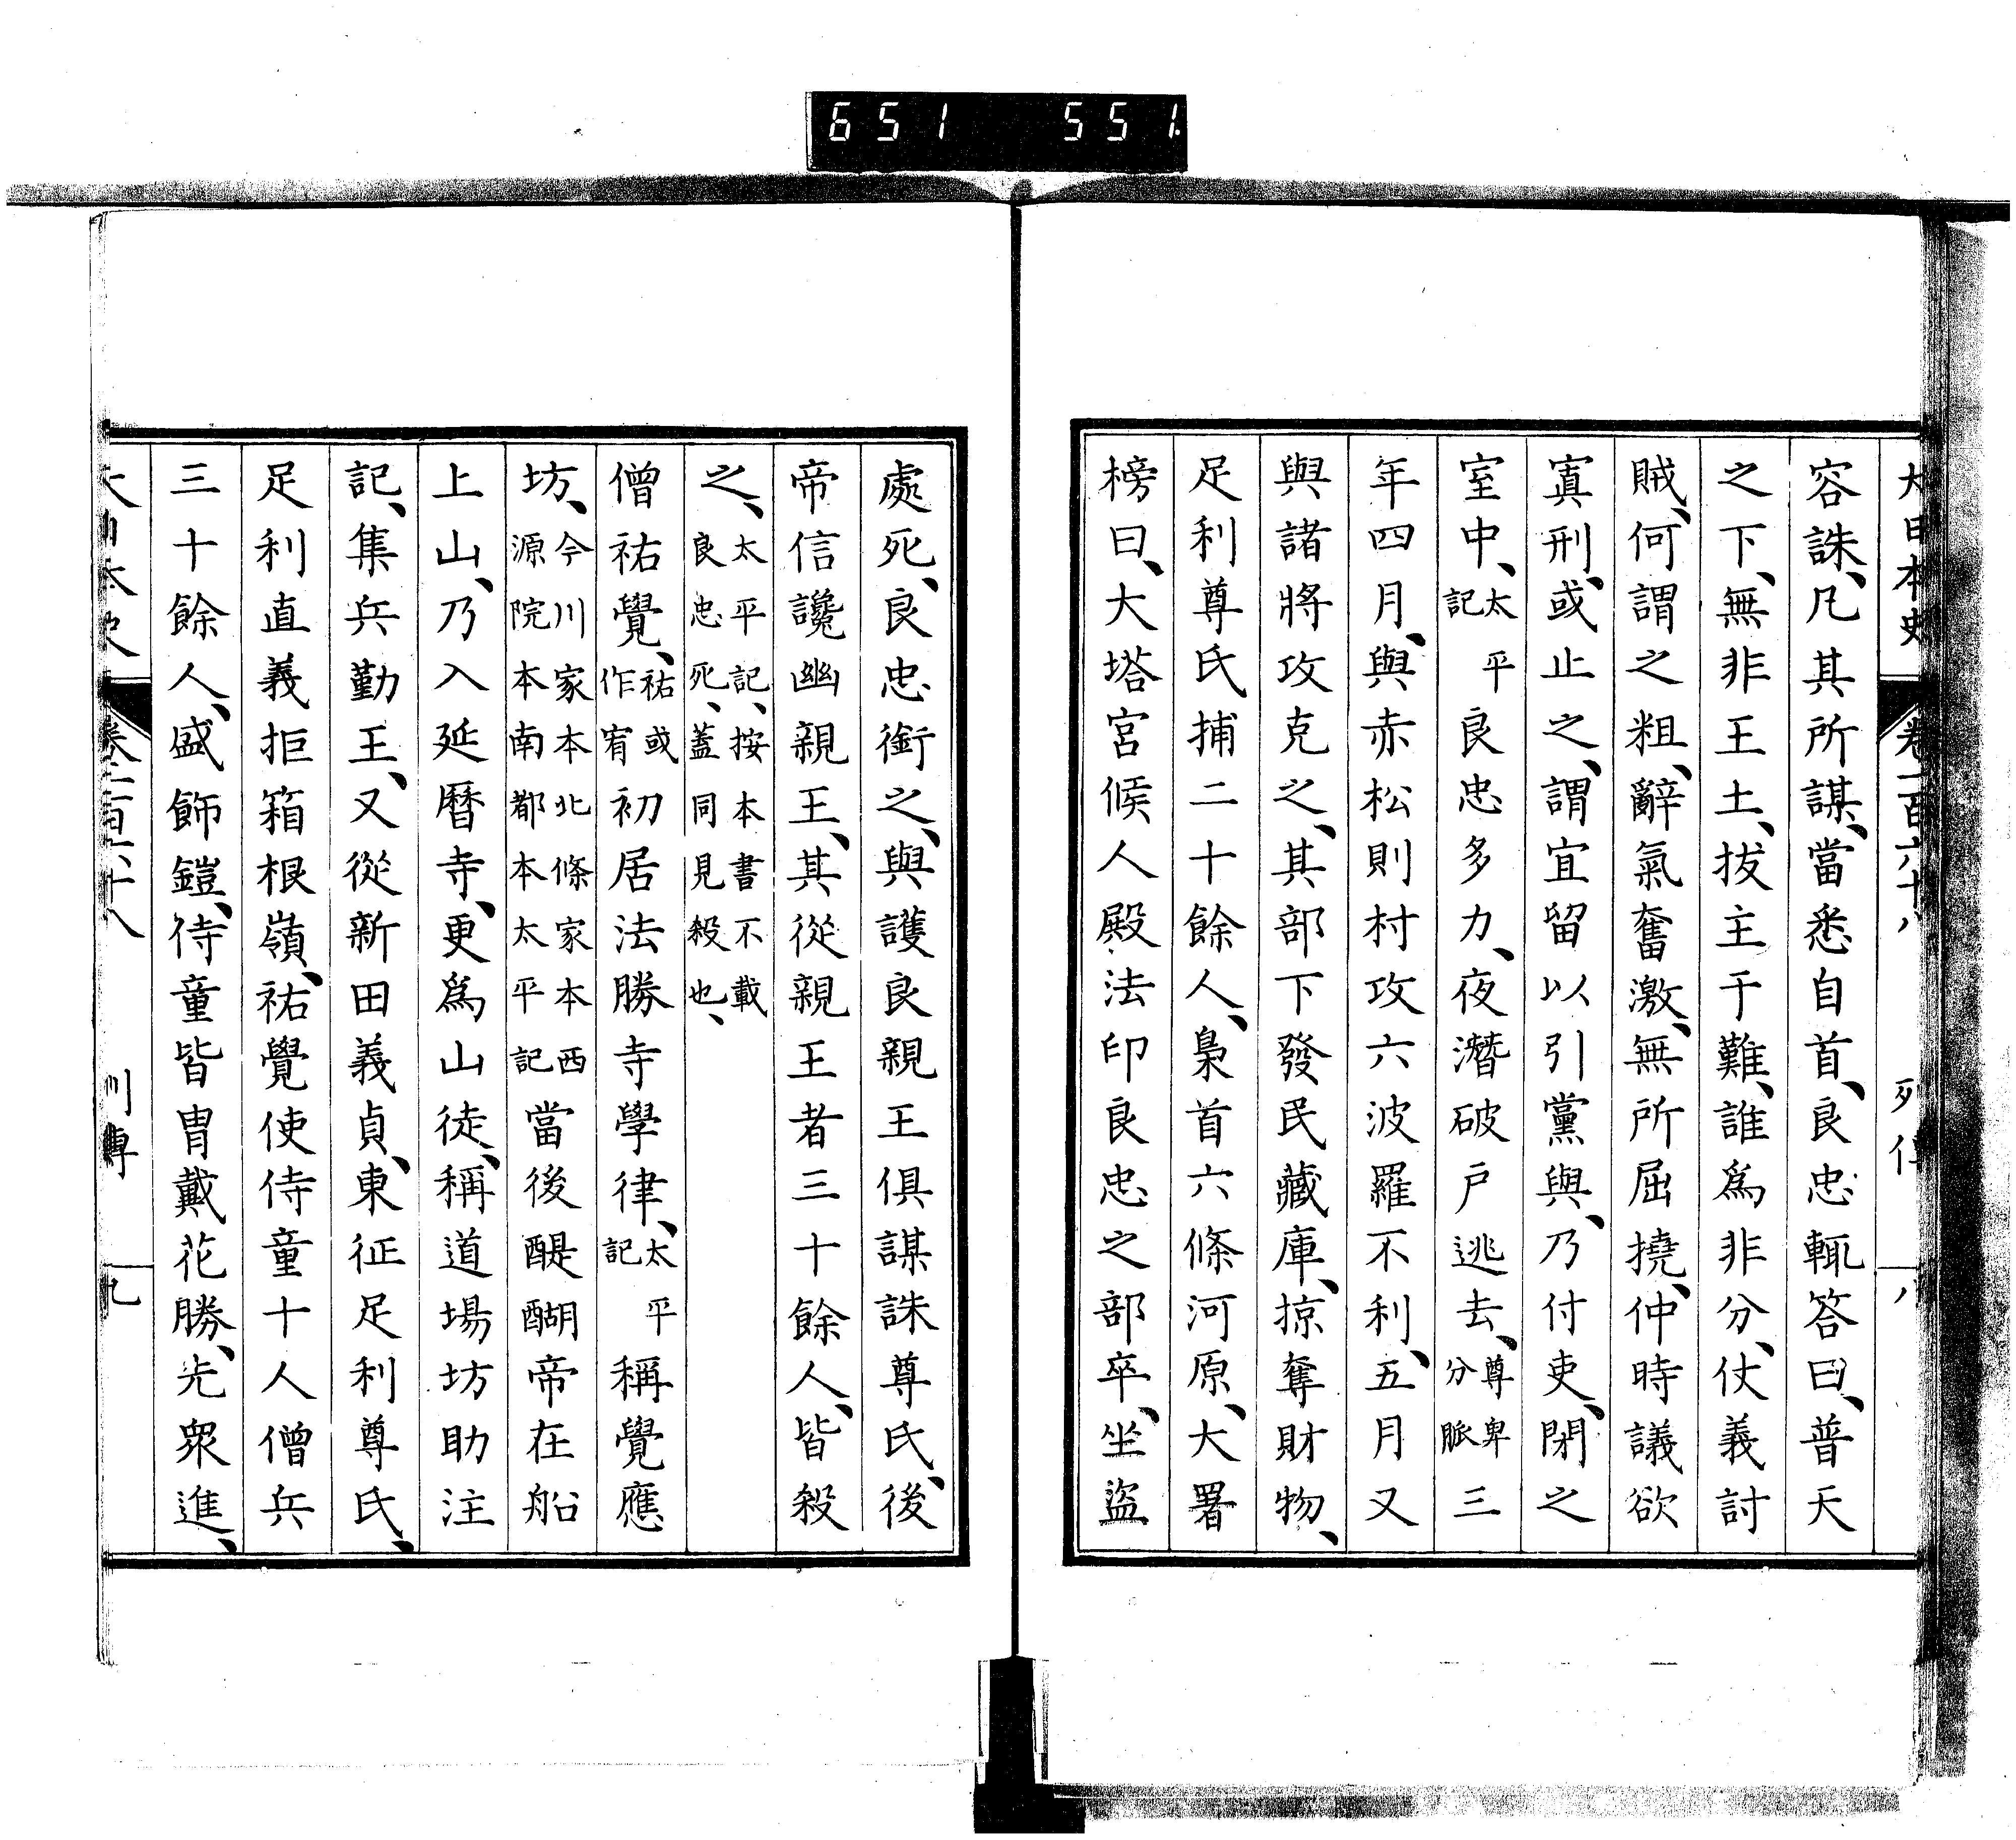 651 551
大日本史 卷一百六十八 列傳 八
容誅、凡其所謀、當悉自首、良忠輒答曰、普天
之下、無非王土、拔主于難、誰爲非分、仗義討
賊、何謂之粗、辭氣奮激、無所屈撓、仲時議欲
寘刑、或止之、謂宜留以引黨與、乃付吏、閉之
室中、太平記良忠多力、夜潛破戸逃去、尊卑分脈三
年四月、與赤松則村攻六波羅不利、五月又
與諸將攻克之、其部下發民藏庫、掠奪財物、
足利尊氏捕二十餘人、梟首六條河原、大署
榜曰、大塔宮候人殿法印良忠之部卒、坐盜
處死、良忠銜之、與護良親王俱謀誅尊氏、後
帝信讒幽親王、其從親王者三十餘人、皆殺
之、太平記、按本書不載良忠死、蓋同見殺也、
僧祐覺、祐或作宥初居法勝寺學律、太平記稱覺應
坊、今川家本北條家本西源院本南都本太平記當後醍醐帝在船
上山、乃入延曆寺、更爲山徒、稱道場坊助注
記、集兵勤王、又從新田義貞、東征足利尊氏、
足利直義拒箱根嶺、祐覺使侍童十人僧兵
三十餘人、盛飾鎧、侍童皆冑戴花勝、先眾進、
大日本史 卷一百六十八 列傳 九